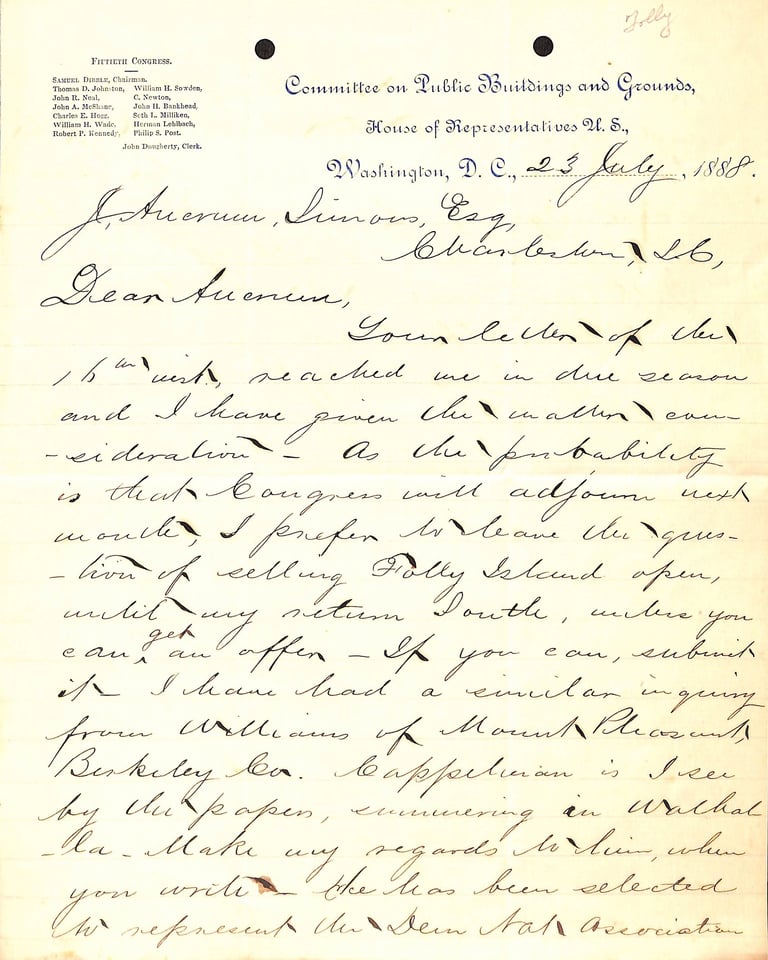 Folly
FIFTIETH CONGRESS.
SAMUEL DIBBLE, Chairman.
Thomas D. Johnston, William H. Sowden,
John R. Neal, C. Newton,
John A. McShane, John H. Bankhead,
Charles E. Hogg, Seth L. Milliken,
William H. Wade, Herman Lehlbach,
Robert P. Kennedy, Philip S. Post.
John Daugherty, Clerk.
Committee on Public Buildings and Grounds,
House of Representatives U. S.,
Washington, D. C., 23 July, 1888.
J, Ancrum, Simons, Esq,
Charleston, S.C,
Dear Ancrum,
Your letter of the
16th inst, reached me in due season
and I have given the matter con-
-sideration - As the probability
is that Congress will adjourn next
month, I prefer to leave the ques-
-tion of selling Folly Island open,
until my return South, unless you
can get an offer - If you can, submit
it - I have had a similar inquiry
from Williams of Mount Pleasant,
Berkeley Co. Cappelman is I see
by the papers, summering in Walhal
-la - Make my regards to him, when
you write - He has been selected
to represent the Dem Nat Association